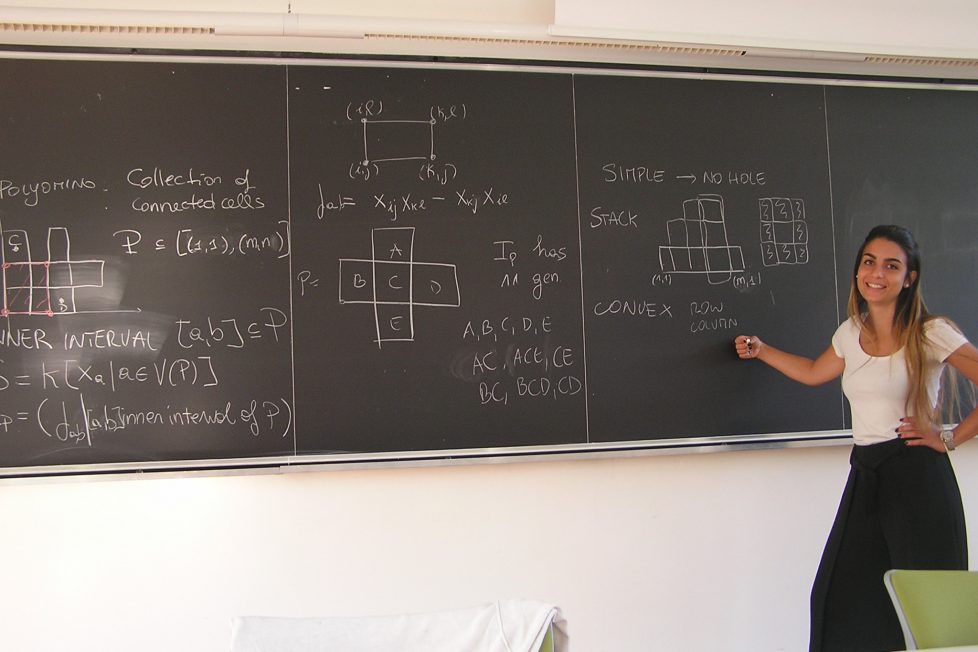 POLYOMINO. Collection of
connected cells
C
P ⊆ [(1,1),(m,n)]
INNER INTERVAL [a,b] ⊆ P
S = K[Xa | a ∈ V(P)]
(fab | [a,b] inner interval of P)
(i,l) (k,l)
(i,j) (k,j)
fab = Xij Xkl − Xkj Xil
P =
A
B C D
E
Ip has
11 gen
A, B, C, D, E
AC, ACE, CE
BC, BCD, CD
SIMPLE → NO HOLE
STACK
(1,1) (m,1)
CONVEX ROW
COLUMN